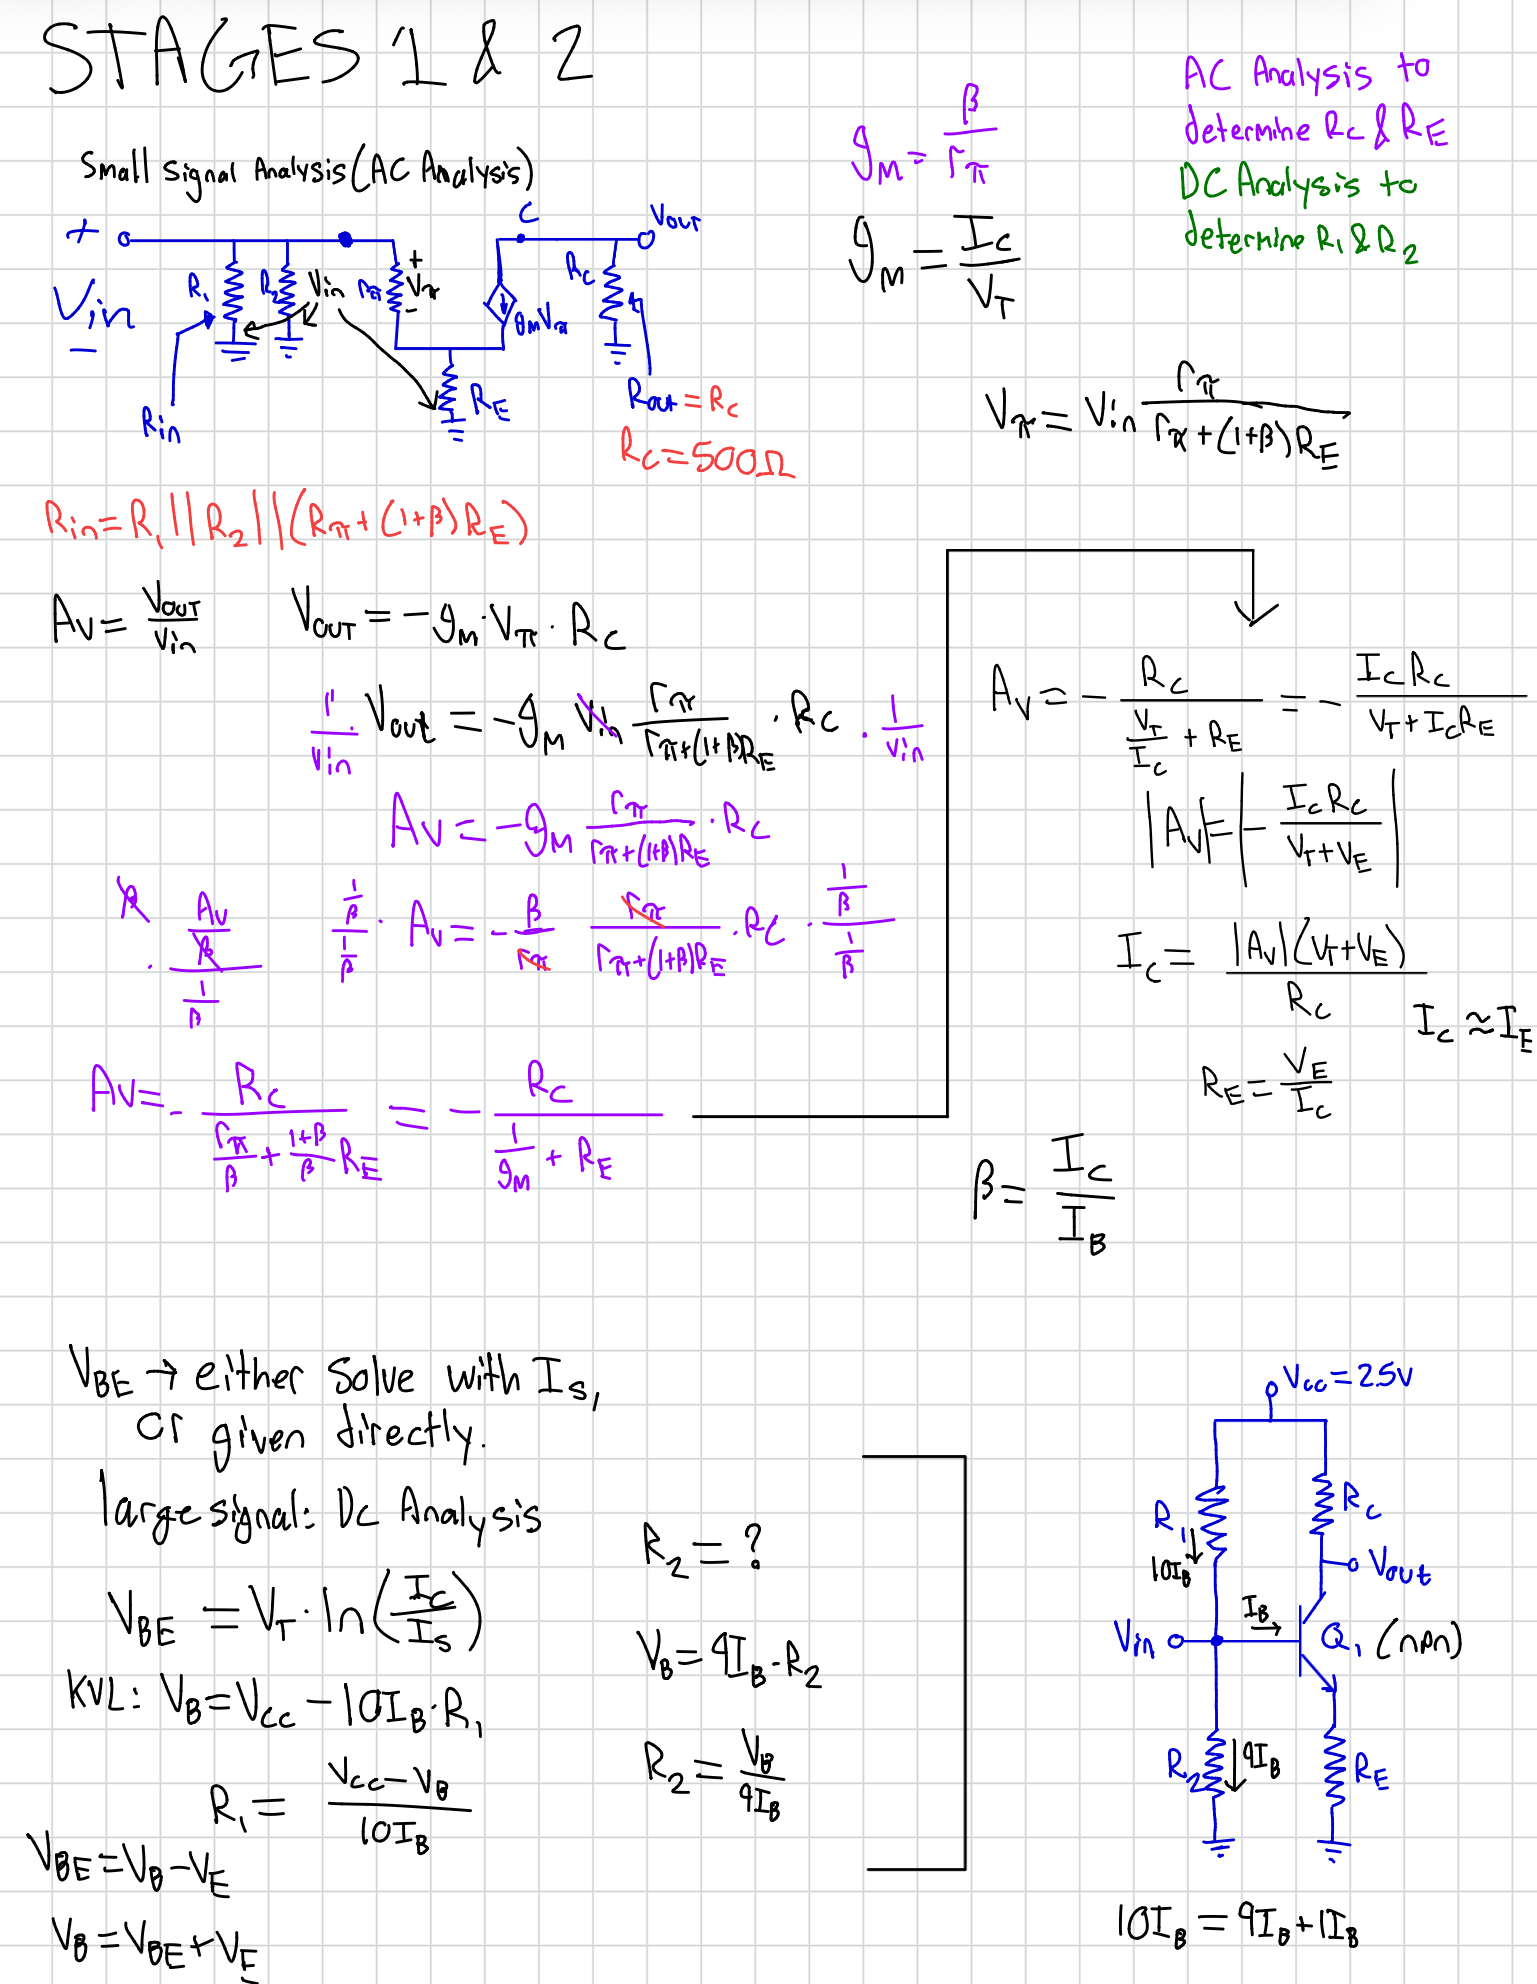 STAGES 1 & 2
AC Analysis to
determine Rc & RE
DC Analysis to
determine R1 & R2
gm = β/rπ
gm = Ic/VT
Small Signal Analysis (AC Analysis)
+
Vin
−
R1
R2
Vin
rπ
+
Vπ
-
C
gmVπ
Rc
Vout
Rin
RE
Rout = Rc
Rc = 500Ω
Vπ = Vin rπ/(rπ+(1+β)RE)
Rin = R1 || R2 || (Rπ + (1+β)RE)
Av = Vout/Vin
Vout = -gm·Vπ·Rc
1/Vin · Vout = -gm Vin rπ/(rπ+(1+β)RE) · Rc · 1/Vin
Av = -gm rπ/(rπ+(1+β)RE) · Rc
β · (Av/β)/(1/β)
(1/β)/(1/β) · Av = - β/rπ rπ/(rπ+(1+β)RE) · Rc · (1/β)/(1/β)
Av = - Rc/(rπ/β + (1+β)/β RE) = - Rc/(1/gm + RE)
Av = - Rc/(VT/Ic + RE) = - IcRc/(VT + IcRE)
|Av| = |- IcRc/(VT+VE)|
Ic = |Av|(VT+VE)/Rc
Ic ≈ IE
RE = VE/Ic
β = Ic/IB
VBE → either solve with Is,
or given directly.
large signal: DC Analysis
VBE = VT · ln(Ic/Is)
KVL: VB = Vcc − 10IB·R1
R1 = (Vcc − VB)/10IB
VBE = VB − VE
VB = VBE + VE
R2 = ?
VB = 9IB·R2
R2 = VB/9IB
Vcc = 2.5V
R1
10IB
Rc
Vout
IB
Vin
Q1 (npn)
R2
9IB
RE
10IB = 9IB + 1IB